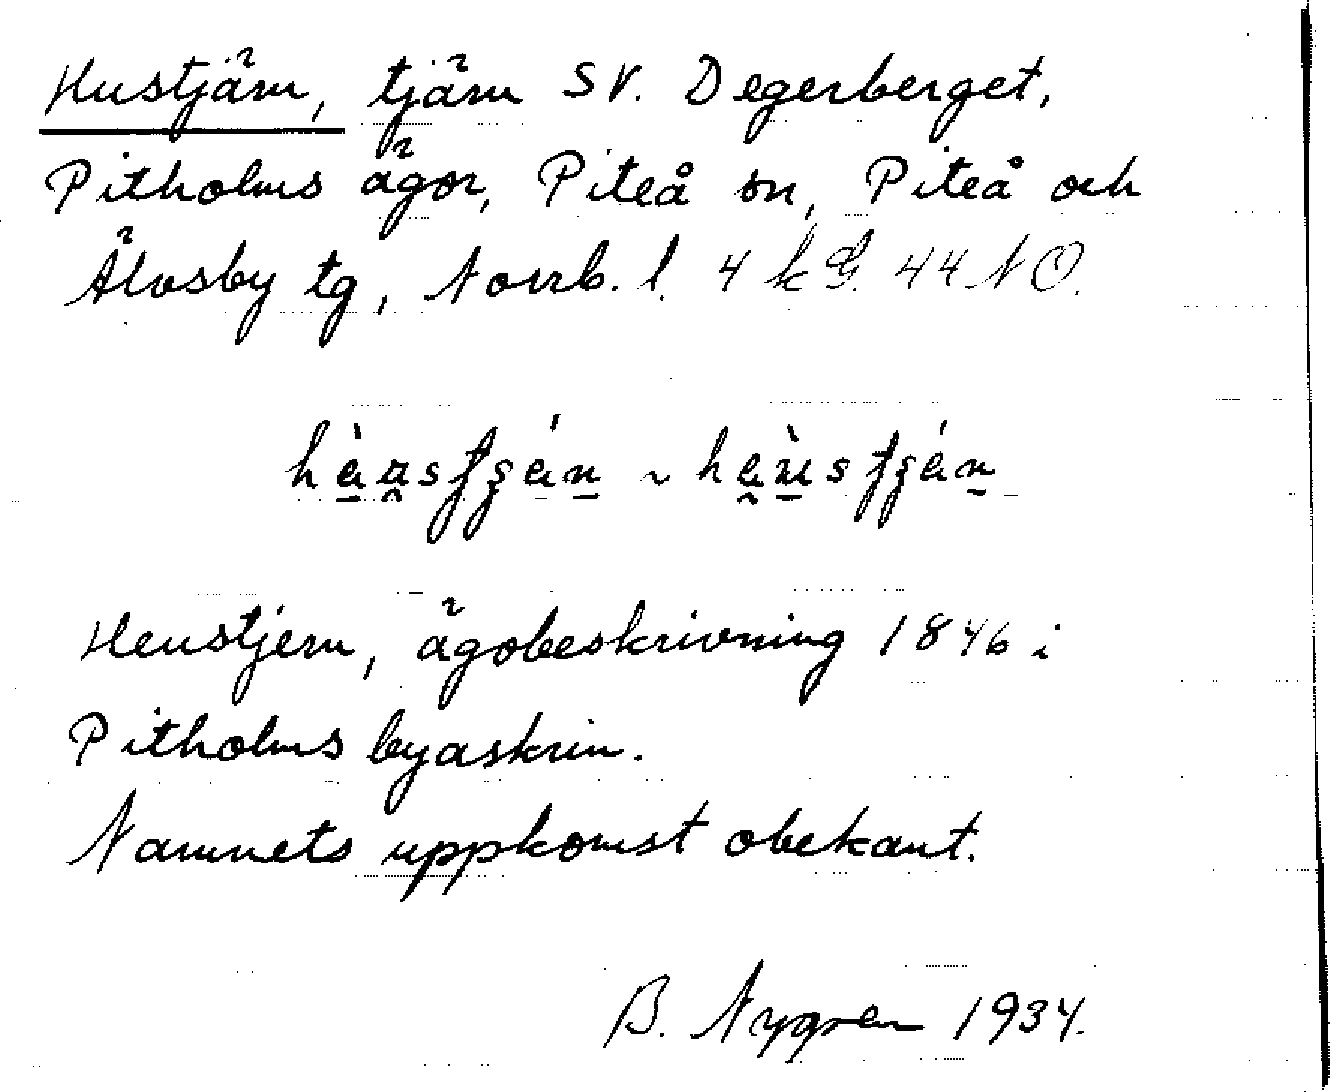 Hustjärn, tjärn SV. Degerberget,
Pitholms ägor, Piteå sn, Piteå och
Älvsby tg, Norrb. l. 4 k G. 44 NO.
Heustjern, ägobeskrivning 1846 i
Pitholms byaskrin.
Namnets uppkomst obekant.
B. Nygren 1934.